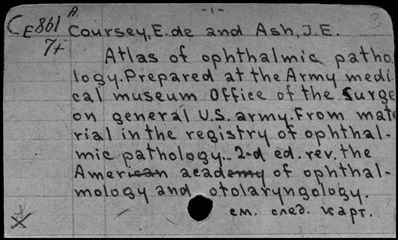 - 1 -
CE861 A Coursey, E. de and Ash, J.E.
7+
Atlas of ophthalmic patho
logy. Prepared at the Army medi-
cal museum Office of the Surge
on general U.S. army. From mate
rial in the registry of ophthal-
mic pathology... 2-d ed. rev. the
American academy of ophthal-
mology and otolaryngology.
см. след. карт.
X